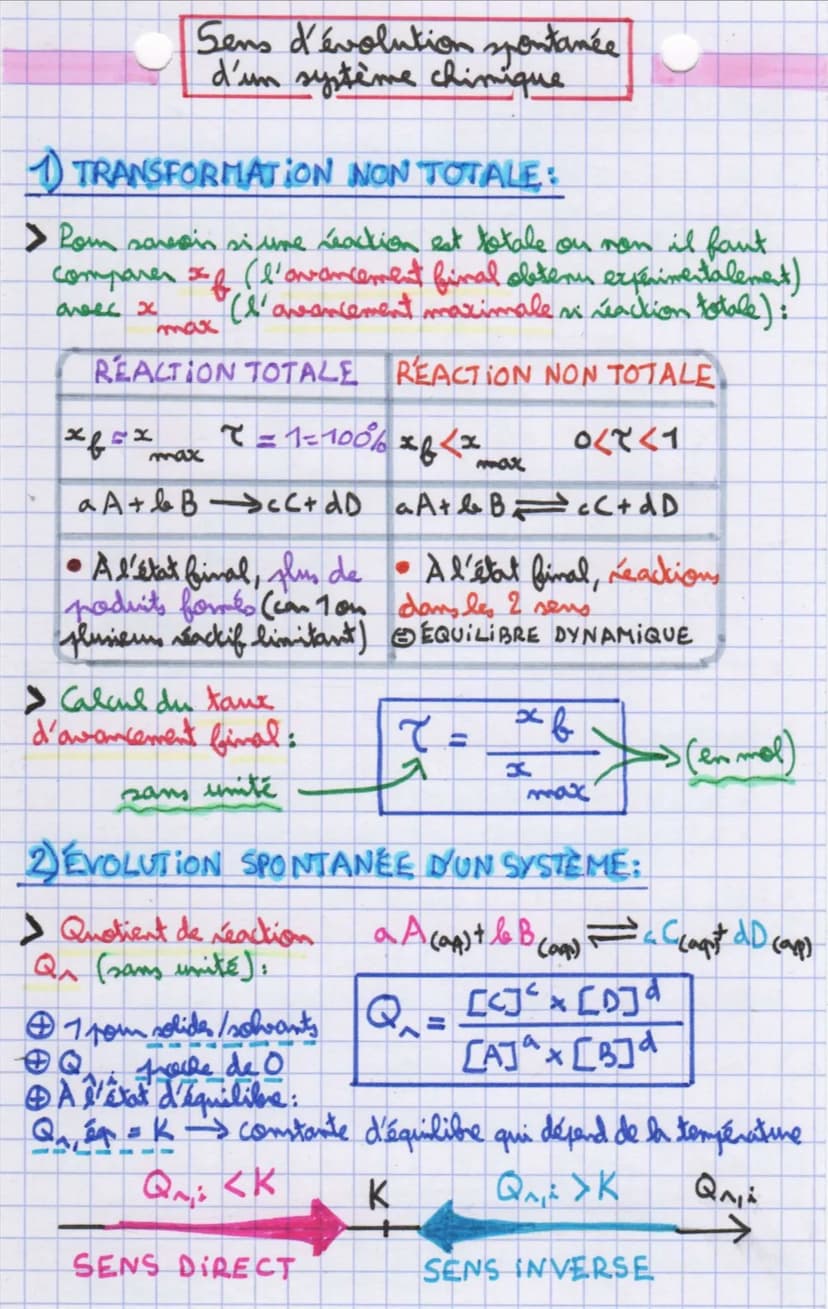 Sens d'évolution spontanée
d'un système chimique
1) TRANSFORMATION NON TOTALE :
> Pour savoir si une réaction est totale ou non il faut
comparer x_f (l'avancement final obtenu expérimentalement)
avec x_max (l'avancement maximale si réaction totale) :
RÉACTION TOTALE
x_f = x_max τ = 1 = 100%
aA + bB → cC + dD
• À l'état final, plus de
produits formés (car 1 ou
plusieurs réactif limitant)
RÉACTION NON TOTALE
x_f < x_max 0 < τ < 1
aA + bB ⇌ cC + dD
• À l'état final, réactions
dans les 2 sens
⊜ ÉQUILIBRE DYNAMIQUE
> Calcul du taux
d'avancement final :
sans unité
τ = x_f / x_max
(en mol)
2) ÉVOLUTION SPONTANÉE D'UN SYSTÈME :
> Quotient de réaction
Qr (sans unité) :
aA(aq) + bB(aq) ⇌ cC(aq) + dD(aq)
Qr = [C]^c × [D]^d / [A]^a × [B]^d
⊕ 1 pour solides/solvants
⊕ Qr,i proche de 0
⊕ À l'état d'équilibre :
Qr,éq = K → constante d'équilibre qui dépend de la température
Qr,i < K
K
Qr,i > K
Qr,i
SENS DIRECT
SENS INVERSE